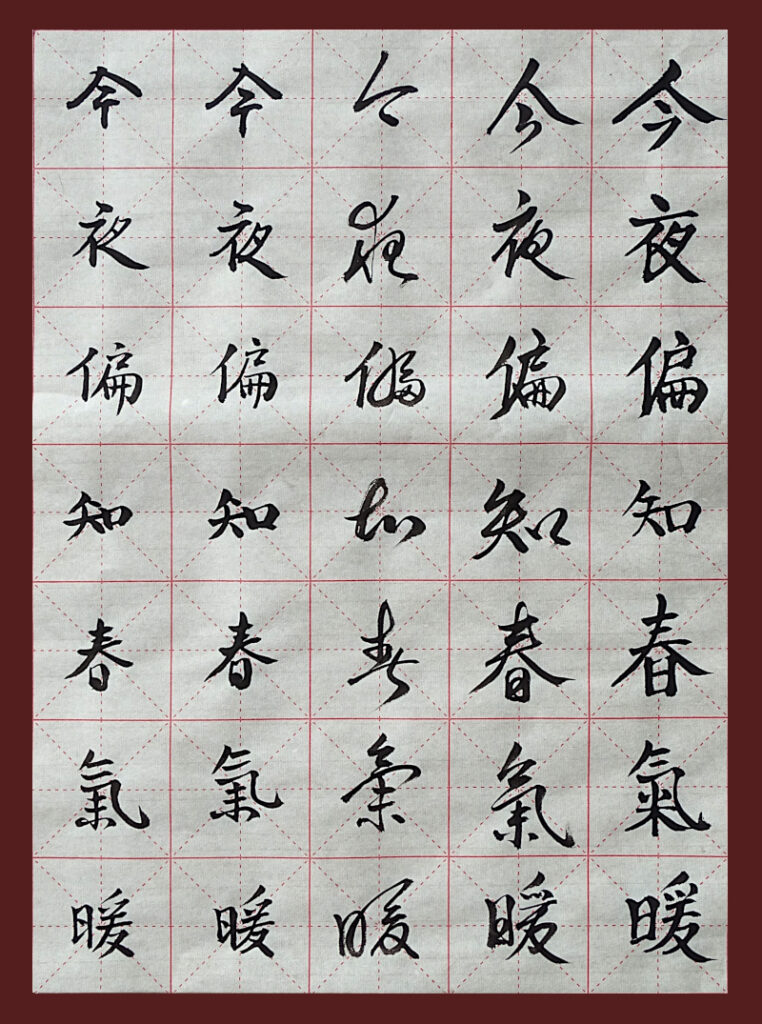 今夜偏知春氣暖
今夜偏知春氣暖
今夜偏知春氣暖
今夜偏知春氣暖
今夜偏知春氣暖